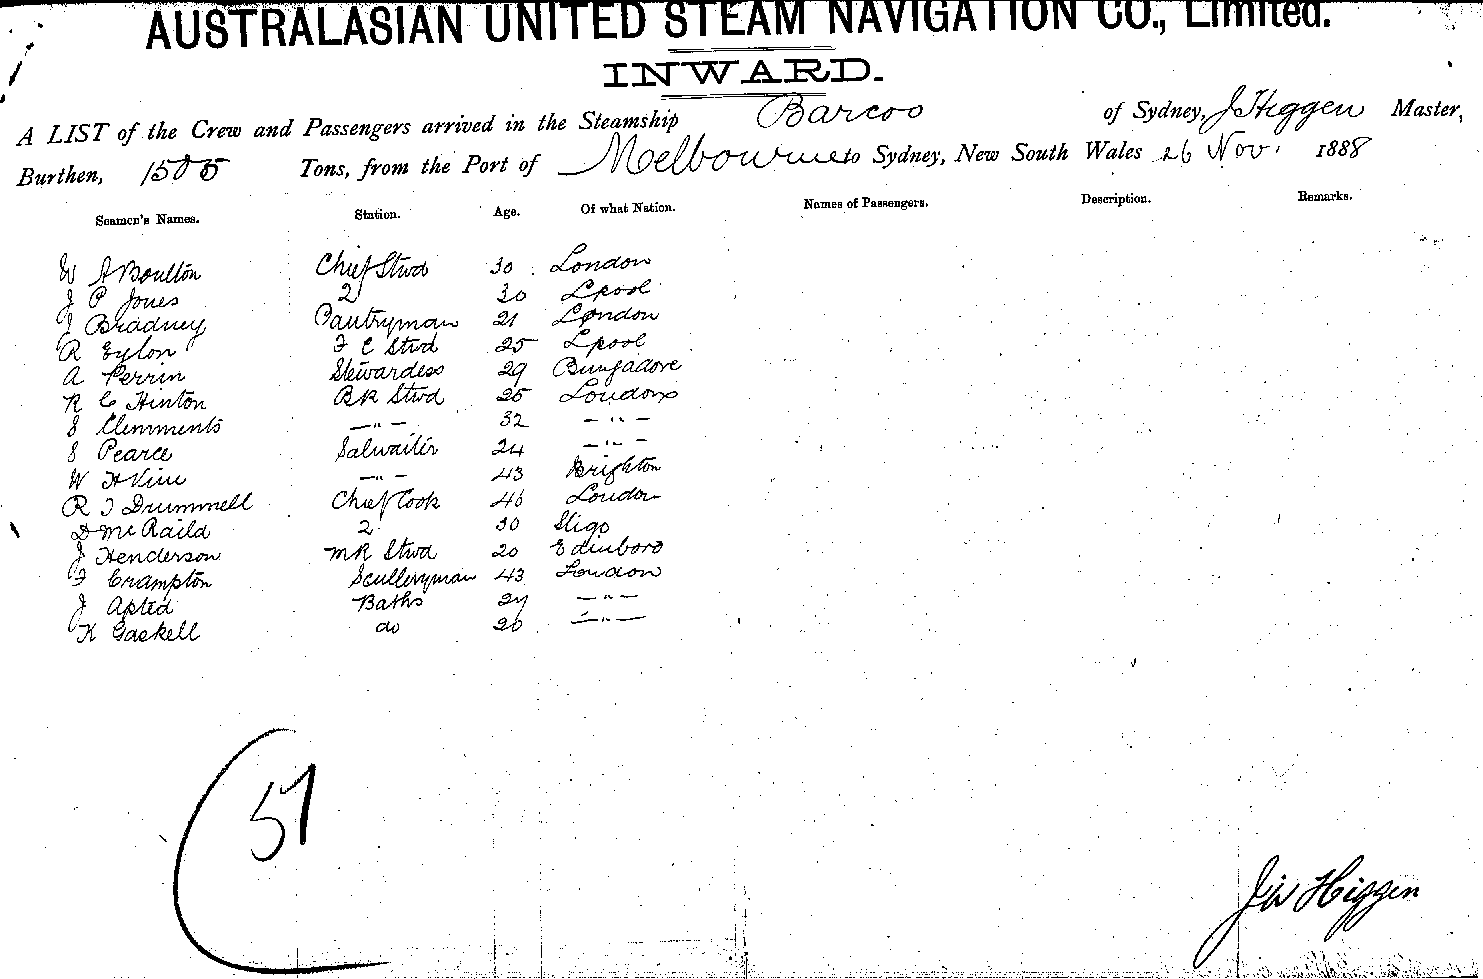 AUSTRALASIAN UNITED STEAM NAVIGATION CO., Limited.
INWARD.
A LIST of the Crew and Passengers arrived in the Steamship Barcoo of Sydney, J Higgen Master,
Burthen, 1505 Tons, from the Port of Melbourne to Sydney, New South Wales 26 Nov. 1888
Seamen's Names. Station. Age. Of what Nation. Names of Passengers. Description. Remarks.
W A Boulton Chief Stwd 30 London
J P Jones 2 30 Lpool
J Bradney Pantryman 21 London
R Eylon F C Stwd 25 Lpool
A Perrin Stewardess 29 Bungadore
R C Hinton BR Stwd 25 London
S Clemments —"— 32 —"—
S Pearce Salwaiter 24 —"—
W H Kim —"— 43 Brighton
R J Drummell Chief Cook 46 London
D McRaild 2 30 Sligo
J Henderson MR Stwd 20 Edinboro
F Crampton Sculleryman 43 London
J Apted Baths 24 —"—
K Gaskell do 20 —"—
57
J W Higgen